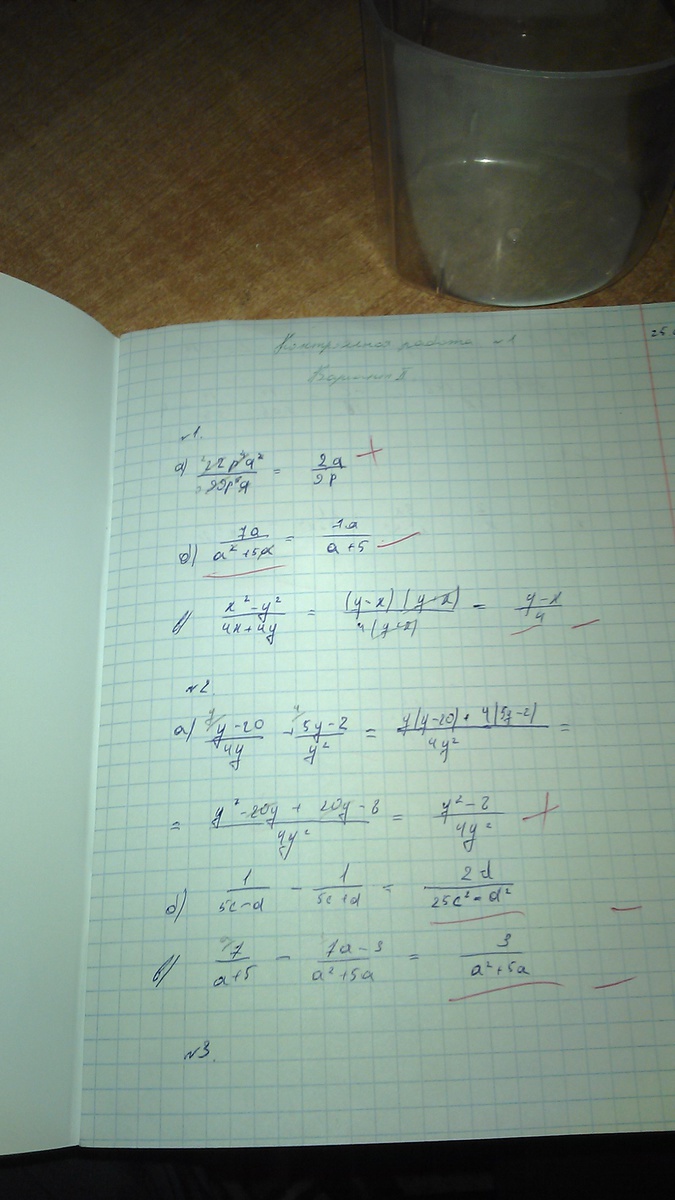 Контрольная работа №1
Вариант II.
№1.
а) 22p⁴a² / 99p⁵a = 2a / 9p +
б) 7a / a² + 5a = 7a / a + 5 –
в) x² – y² / 4x + 4y = (y – x) (y – x) / 4(y – x) = y – x / 4 –
№2
а) y – 20 / 4y + 5y – 2 / y² = y(y – 20) + 4(5y – 2) / 4y² =
= y² – 20y + 20y – 8 / 4y² = y² – 8 / 4y² +
б) 1 / 5c – d – 1 / 5c + d = 2d / 25c² – d² –
в) 7 / a + 5 – 7a – 3 / a² + 5a = 3 / a² + 5a –
№3.